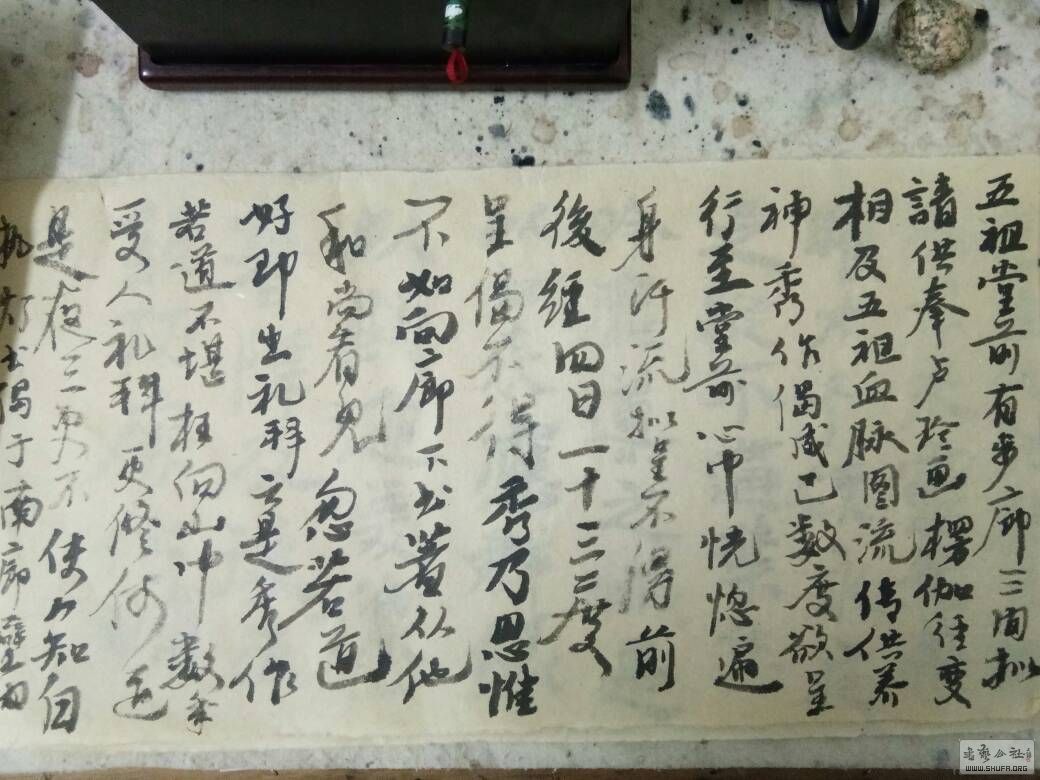 五祖堂前有步廊三间拟
請供奉卢玲画楞伽经变
相及五祖血脉图流传供养
神秀作偈成已数度欲呈
行至堂前心中恍惚遍
身汗流拟呈不得前
後经四日一十三度
呈偈不得秀乃思惟
不如向廊下书著从他
和尚看见忽若道
好即出礼拜云是秀作
若道不堪枉向山中数年
受人礼拜更修何道
是夜三更不使人知自
执灯书偈于南廊壁间
书艺公社
WWW.SHUFA.ORG